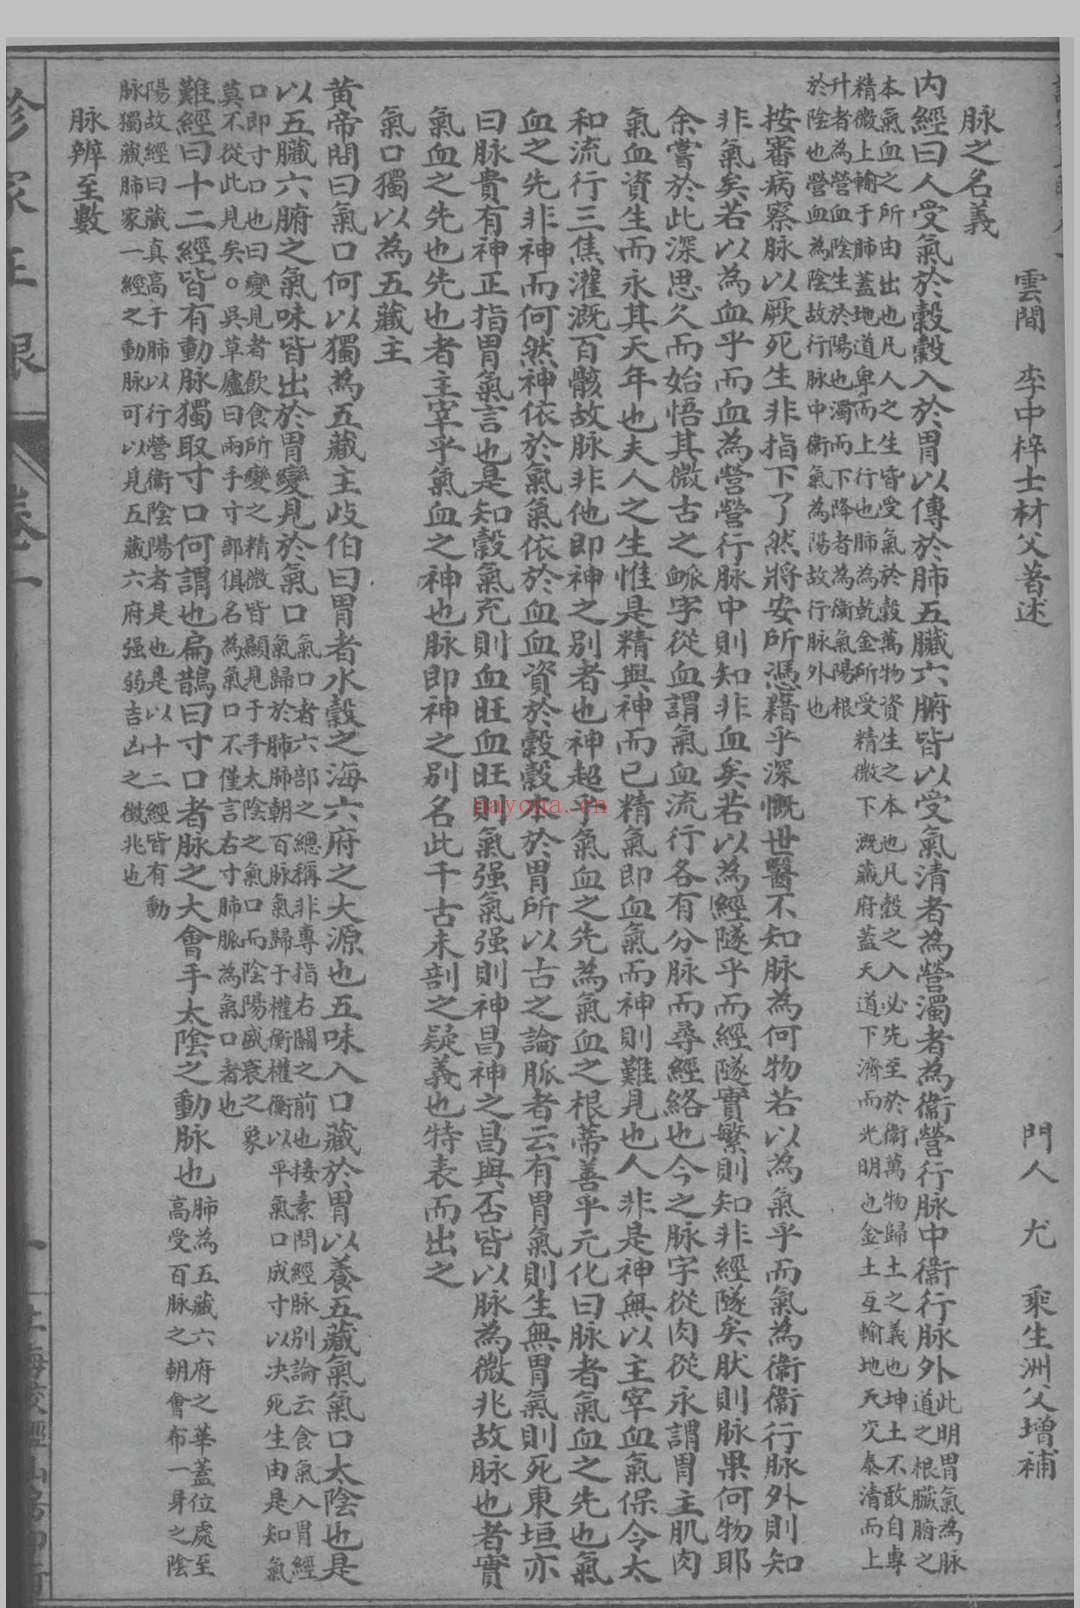 雲間 李中梓士材父著述 門人 尤 乘生洲父增補
脉之名義
内經曰人受氣於穀穀入於胃以傳於肺五臟六腑皆以受氣清者為營濁者為衞營行脉中衞行脉外此明胃氣為脉
道之根臟腑之
本氣血之所由出也凡人之生皆受氣於穀萬物資生之本也凡穀之入必先至於衞萬物歸土之義也坤土不敢自專
精微上輸于肺蓋地道卑而上行也肺為乾金所受精微下溉藏府蓋天道下濟而光明也金土互輸地天交泰清而上
升者為營血陰生於陽也濁而下降者為衞氣陽根
於陰也營血為陰故行脉中衞氣為陽故行脉外也
按審病察脉以厥死生非指下了然將安所憑藉乎深慨世醫不知脉為何物若以為氣乎而氣為衞衞行脉外則知
非氣矣若以為血乎而血為營營行脉中則知非血矣若以為經隧乎而經隧實繁則知非經隧矣肰則脉果何物耶
余嘗於此深思久而始悟其微古之衇字從血謂氣血流行各有分脉而尋經絡也今之脉字從肉從永謂胃主肌肉
氣血資生而永其天年也夫人之生惟是精與神而已精氣即血氣而神則難見也人非是神無以主宰血氣保令太
和流行三焦灌溉百骸故脉非他即神之别者也神超乎氣血之先為氣血之根蒂善乎元化曰脉者氣血之先也氣
血之先非神而何然神依於氣氣依於血血資於穀穀本於胃所以古之論脈者云有胃氣則生無胃氣則死東垣亦
曰脉貴有神正指胃氣言也是知穀氣充則血旺血旺則氣强氣强則神昌神之昌與否皆以脉為微兆故脉也者實
氣血之先也先也者主宰乎氣血之神也脉即神之别名此千古未剖之疑義也特表而出之
氣口獨以為五藏主
黄帝問曰氣口何以獨為五藏主歧伯曰胃者水穀之海六府之大源也五味入口藏於胃以養五藏氣氣口太陰也是
以五臟六腑之氣味皆出於胃變見於氣口氣口者六部之總稱非專指右關之前也接素問經脉别論云食氣入胃經
氣歸於肺肺朝百脉氣歸于權衡權衡以平氣口成寸以决死生由是知氣
口即寸口也曰變見者飲食所變之精微皆顯見于手太陰之氣口而陰陽盛衰之象
莫不從此見矣○吳草廬曰兩手寸部俱名為氣口不僅言右寸肺脈為氣口者也
難經曰十二經皆有動脉獨取寸口何謂也扁鵲曰寸口者脉之大會手太陰之動脉也肺為五藏六府之華蓋位處至
高受百脉之朝會布一身之陰
陽故經曰藏真高于肺以行營衞陰陽者是也是以十二經皆有動
脉獨藏肺家一經之動脉可以見五藏六府强弱吉凶之徵兆也
脉辨至數
nayona.cn